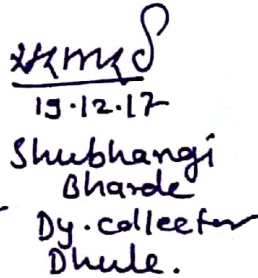 19.12.17
Shubhangi
Bharde
Dy. collector
Dhule.